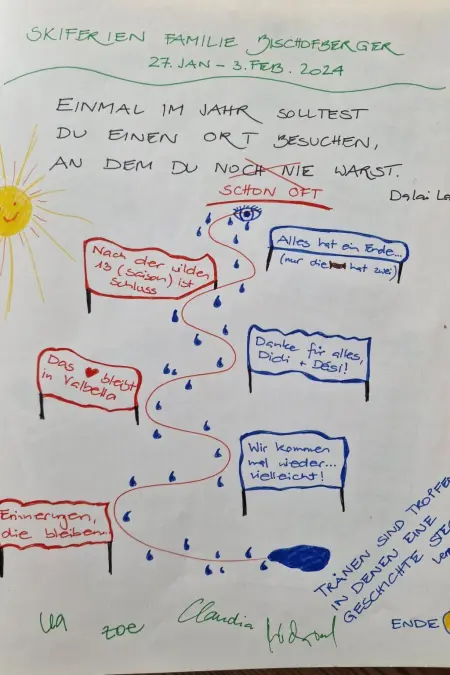 SKIFERIEN FAMILIE BISCHOFBERGER
27. JAN – 3. FEB. 2024
EINMAL IM JAHR SOLLTEST
DU EINEN ORT BESUCHEN,
AN DEM DU NOCH NIE WARST.
SCHON OFT
Dalai La
Alles hat ein Ende...
(nur die hat zwei)
Nach der wilden
13 (Saison) ist
Schluss
Danke für alles,
Didi + Dési!
Das ❤ bleibt
in Valbella
Wir kommen
mal wieder...
vielleicht!
Erinnerungen,
die bleiben...
TRÄNEN SIND TROPFEN
IN DENEN EINE
GESCHICHTE
zoe
Claudia
ENDE